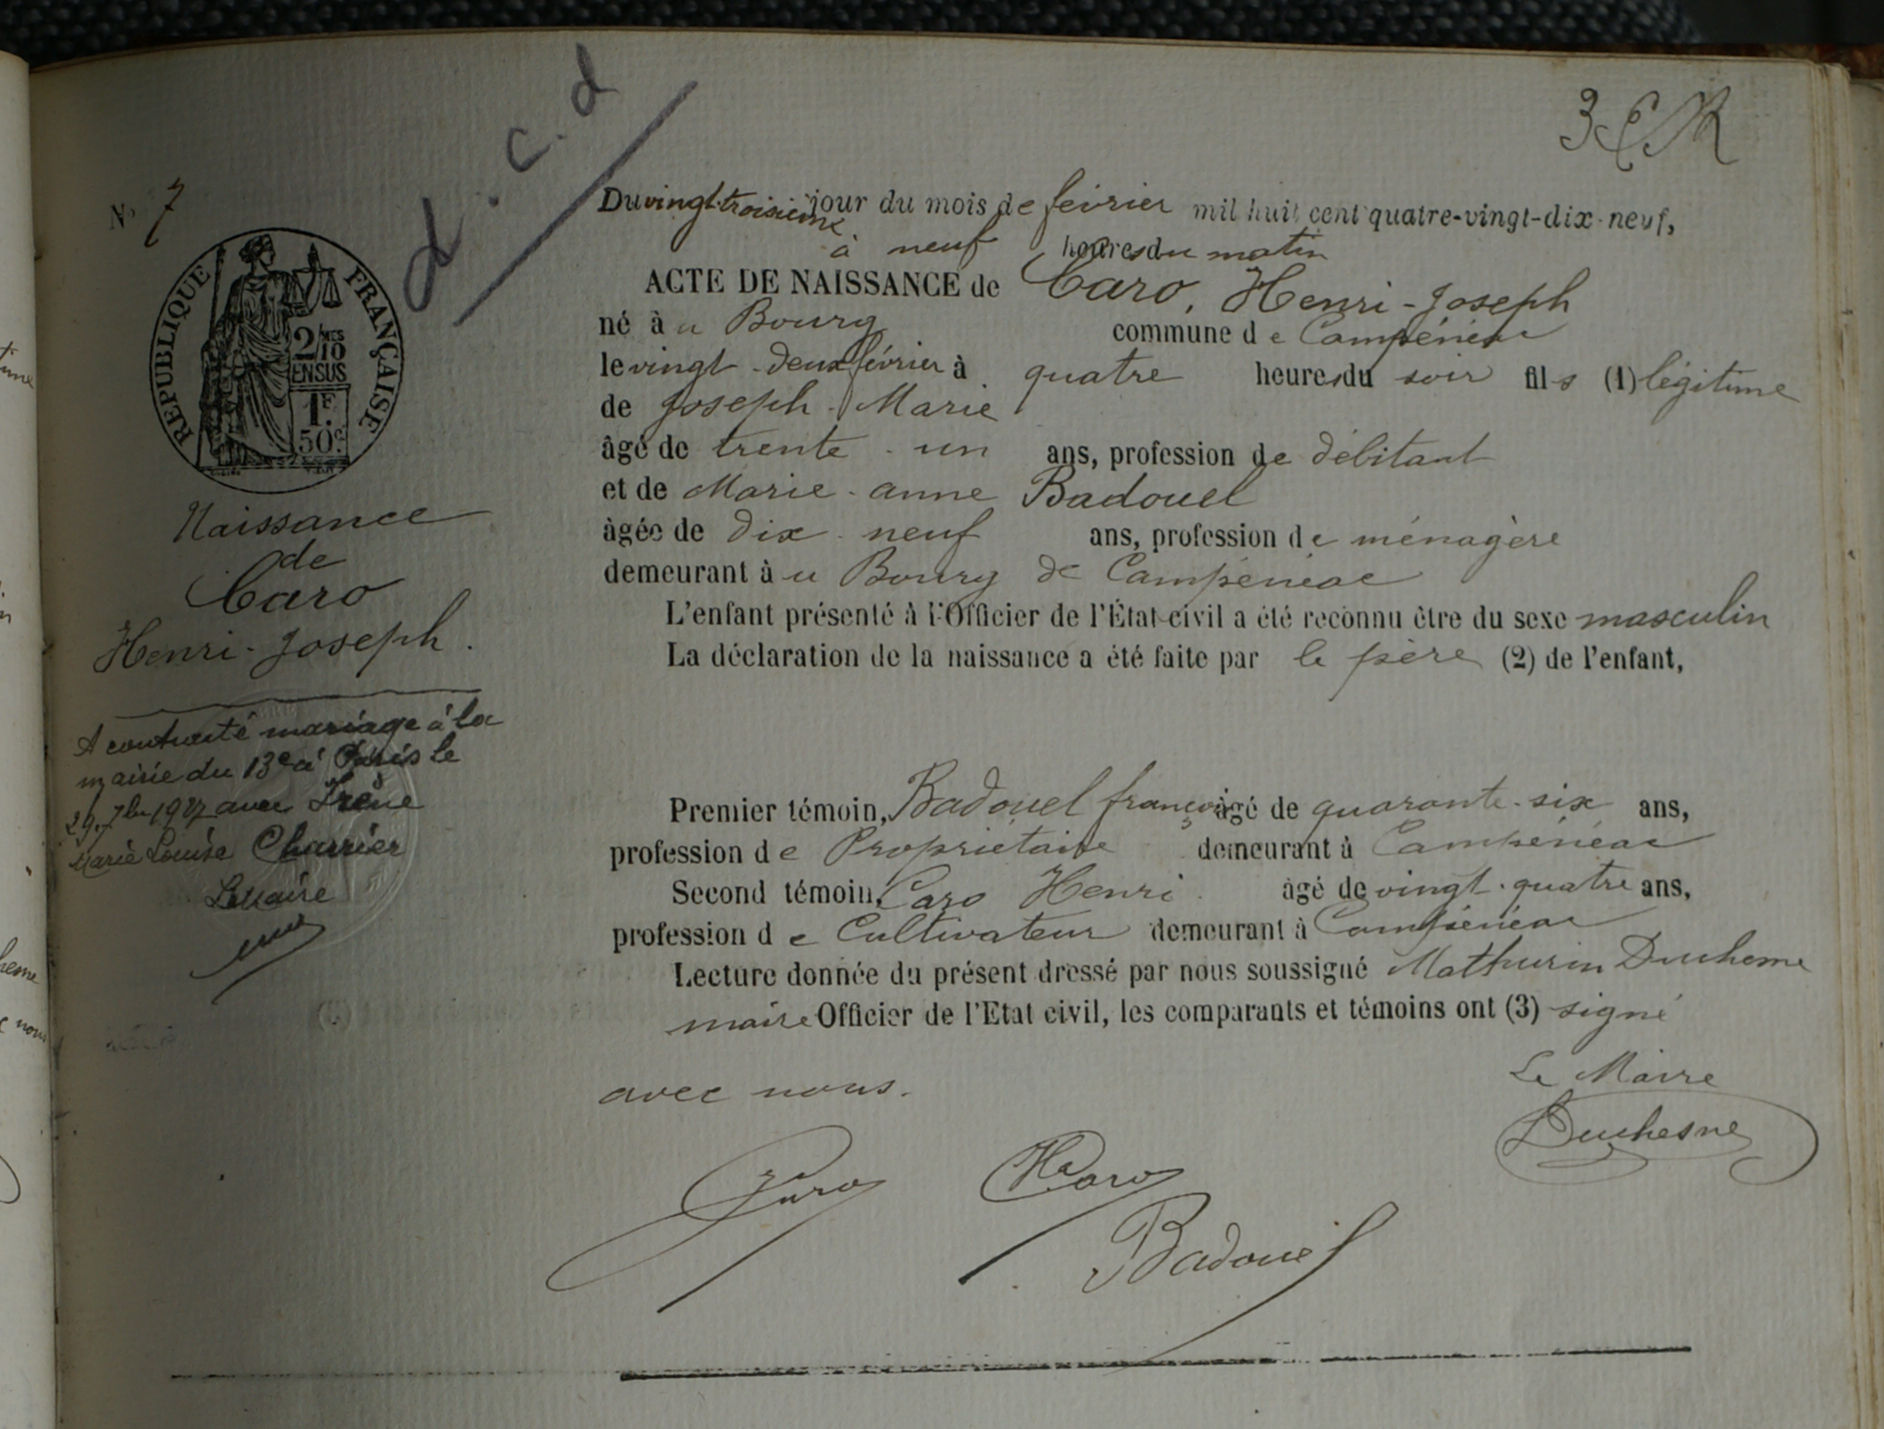 d.c.d
3
N° 7
RÉPUBLIQUE FRANÇAISE
2/10
EN SUS
1F.
50c.
Naissance
de
Caro
Henri-Joseph.
A contracté mariage à la
mairie du 13e à Paris le
29. 7bre 1927 avec Irène
Marie Louise Charrier
Le Maire
Du vingt-troisième jour du mois de février mil huit cent quatre-vingt-dix-neuf,
à neuf heures du matin
ACTE DE NAISSANCE de Caro, Henri-Joseph
né à u Bourg commune d e Campénéac
le vingt-deux février à quatre heures du soir fil s (1) légitime
de Joseph-Marie
âgé de trente-un ans, profession de débitant
et de Marie-anne Badouel
âgée de dix-neuf ans, profession d e ménagère
demeurant à u Bourg de Campénéac
L'enfant présenté à l'Officier de l'État civil a été reconnu être du sexe masculin
La déclaration de la naissance a été faite par le père (2) de l'enfant,
Premier témoin, Badouel françois âgé de quarante-six ans,
profession d e Propriétaire demeurant à Campénéac
Second témoin, Caro Henri âgé de vingt-quatre ans,
profession d e Cultivateur demeurant à Campénéac
Lecture donnée du présent dressé par nous soussigné Mathurin Duchesne
maire Officier de l'Etat civil, les comparants et témoins ont (3) signé
avec nous.
Le Maire
Duchesne
Caro
H Caro
Badouel